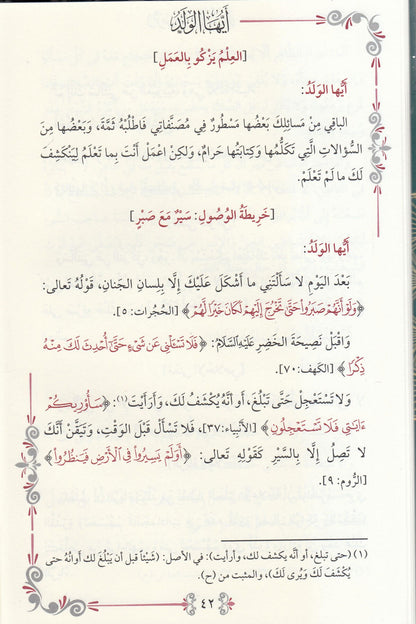 أَيُّهَا الوَلَدُ
[العِلْمُ يَزْكُو بِالعَمَلِ]
أَيُّها الوَلَدُ:
الباقِي مِنْ مَسائِلِكَ بَعْضُها مَسْطُورٌ فِي مُصَنَّفاتِي فَاطْلُبْهُ ثَمَّةَ، وَبَعْضُها مِنَ
السُّؤالاتِ الَّتِي تَكَلُّمُها وَكِتابَتُها حَرامٌ، وَلكِنْ اعْمَلْ أَنْتَ بِما تَعْلَمُ لِيَنْكَشِفَ
لَكَ ما لَمْ تَعْلَمْ.
[خَرِيطَةُ الوُصُولِ: سَيْرٌ مَعَ صَبْرٍ]
أَيُّها الوَلَدُ:
بَعْدَ اليَوْمِ لا سَأَلْتَنِي ما أَشْكَلَ عَلَيْكَ إِلَّا بِلِسانِ الجَنانِ، قَوْلُهُ تَعالى:
﴿وَلَوْ أَنَّهُمْ صَبَرُوا حَتَّى تَخْرُجَ إِلَيْهِمْ لَكَانَ خَيْرًا لَّهُمْ﴾ [الحُجُرات: ٥].
وَاقْبَلْ نَصِيحَةَ الخَضِرِ عَلَيْهِ السَّلَامُ: ﴿فَلَا تَسْـَٔلْنِي عَن شَيْءٍ حَتَّىٰٓ أُحْدِثَ لَكَ مِنْهُ
ذِكْرًا﴾ [الكَهف: ٧٠].
وَلا تَسْتَعْجِلْ حَتَّى تَبْلُغَ، أَو أَنَّهُ يُكْشَفُ لَكَ، وَأَرَأَيْتَ(١): ﴿سَأُوْرِيكُمْ
ءَايَٰتِي فَلَا تَسْتَعْجِلُونِ﴾ [الأَنْبِياء: ٣٧]، فَلا تَسْأَلْ قَبْلَ الوَقْتِ، وَتَيَقَّنْ أَنَّكَ
لا تَصِلُ إِلَّا بِالسَّيْرِ كَقَوْلِهِ تَعالى: ﴿أَوَلَمْ يَسِيرُوا فِي الْأَرْضِ فَيَنظُرُوا﴾
[الرُّوم: ٩].
(١) (حتى تبلغ، أو أنَّه يكشف لك، وأرأيت): في الأصل: (شَيْئاً قبل أن يَبْلُغَ لك أوانُهُ حتى
يُكْشَفَ لَكَ وَيُرى لَكَ)، والمثبت من (ح).
٤٢